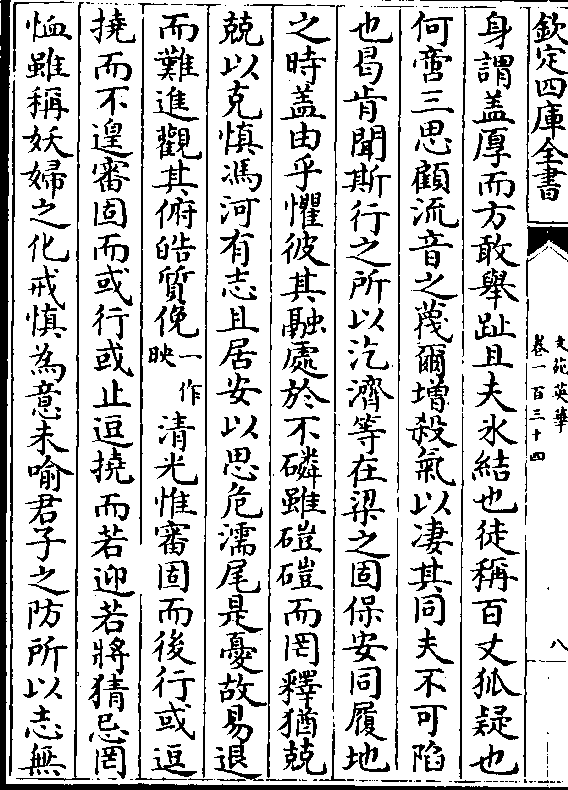 欽定四庫全書
文苑英華
卷一百三十四
八
身謂盖厚而方敢舉趾且夫氷結也徒稱百丈狐疑也
何啻三思顧流音之蔑爾増殺氣以凄其同夫不可陷
也曷肯聞斯行之所以汔濟等在梁之固保安同履地
之時盖由乎懼彼其融處於不磷雖磑磑而罔釋猶兢
兢以克慎馮河有志且居安以思危濡尾是憂故易退
而難進觀其俯皓質俛一作映清光惟審固而後行或逗
撓而不遑審固而或行或止逗撓而若迎若將猜忌罔
恤雖稱妖婦之化戒慎為意未喻君子之防所以志無